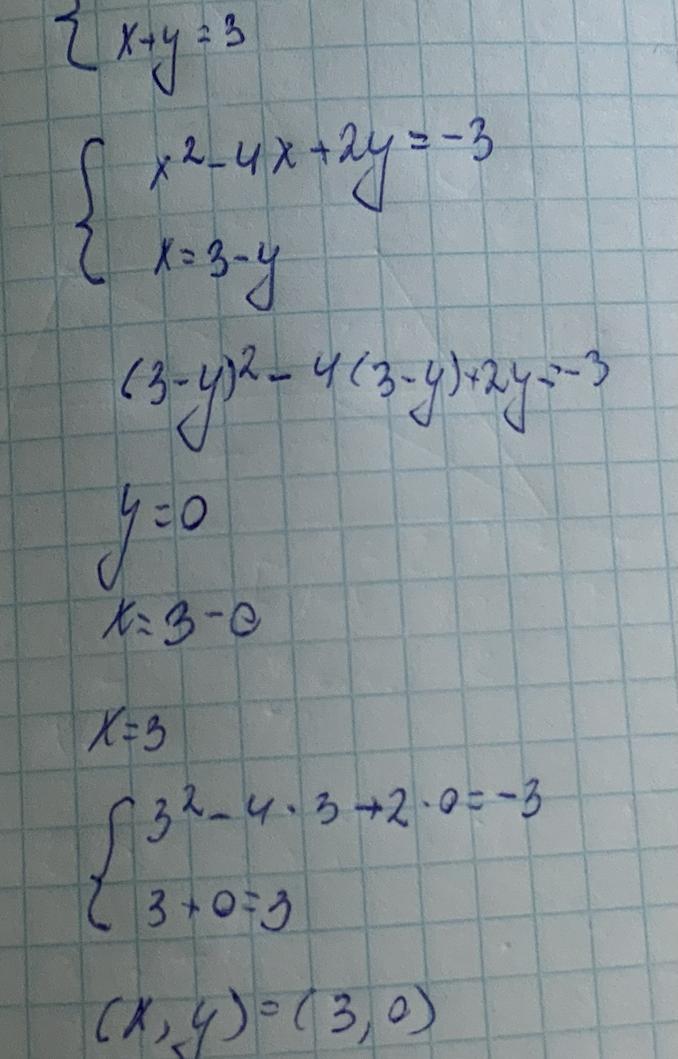 x+y=3
x²-4x+2y=-3
x=3-y
(3-y)²-4(3-y)+2y=-3
y=0
x=3-0
x=3
3²-4·3+2·0=-3
3+0=3
(x,y)=(3,0)